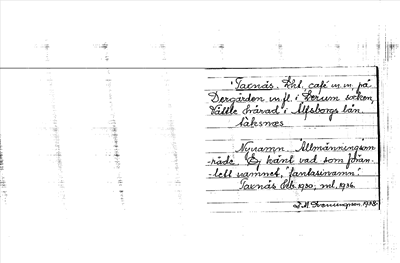 Taxnäs. Lht, café m.m. på
Dergården m.fl. i Lerum socken,
Vättle härad i Älfsborgs län.
taksnæs
Nynamn. Allmänningsom-
råde. Ej känt vad som föran-
lett namnet, "fantasinamn".
Taxnäs Ebl. 1930, ml. 1936.
1938